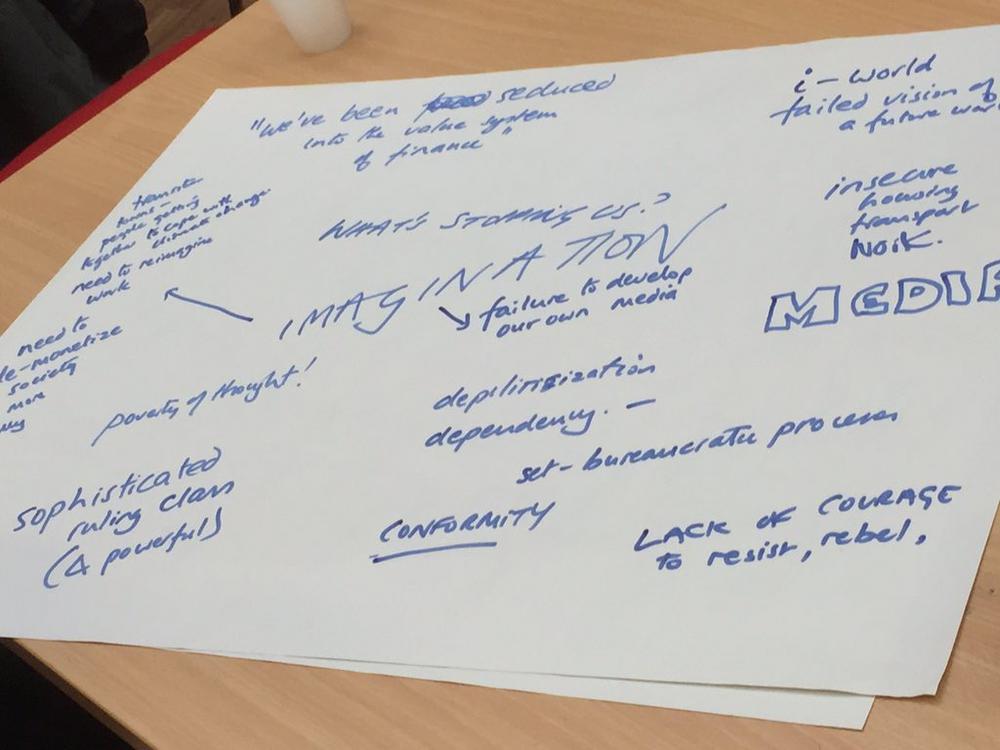 "We've been seduced
into the value system
of finance"
i-world
failed vision of
a future
insecure
housing
transport
MEDIA
WHAT'S STOPPING US?
IMAGINATION
failure to develop
our own media
transition
towns -
people getting
together to cope with
climate change
need to reimagine
work
need to
de-monetize
society
more
poverty of thought!
depiliticization
dependency. —
set - bureaucratic processes
sophisticated
ruling class
(& powerful)
CONFORMITY
LACK OF COURAGE
to resist, rebel.